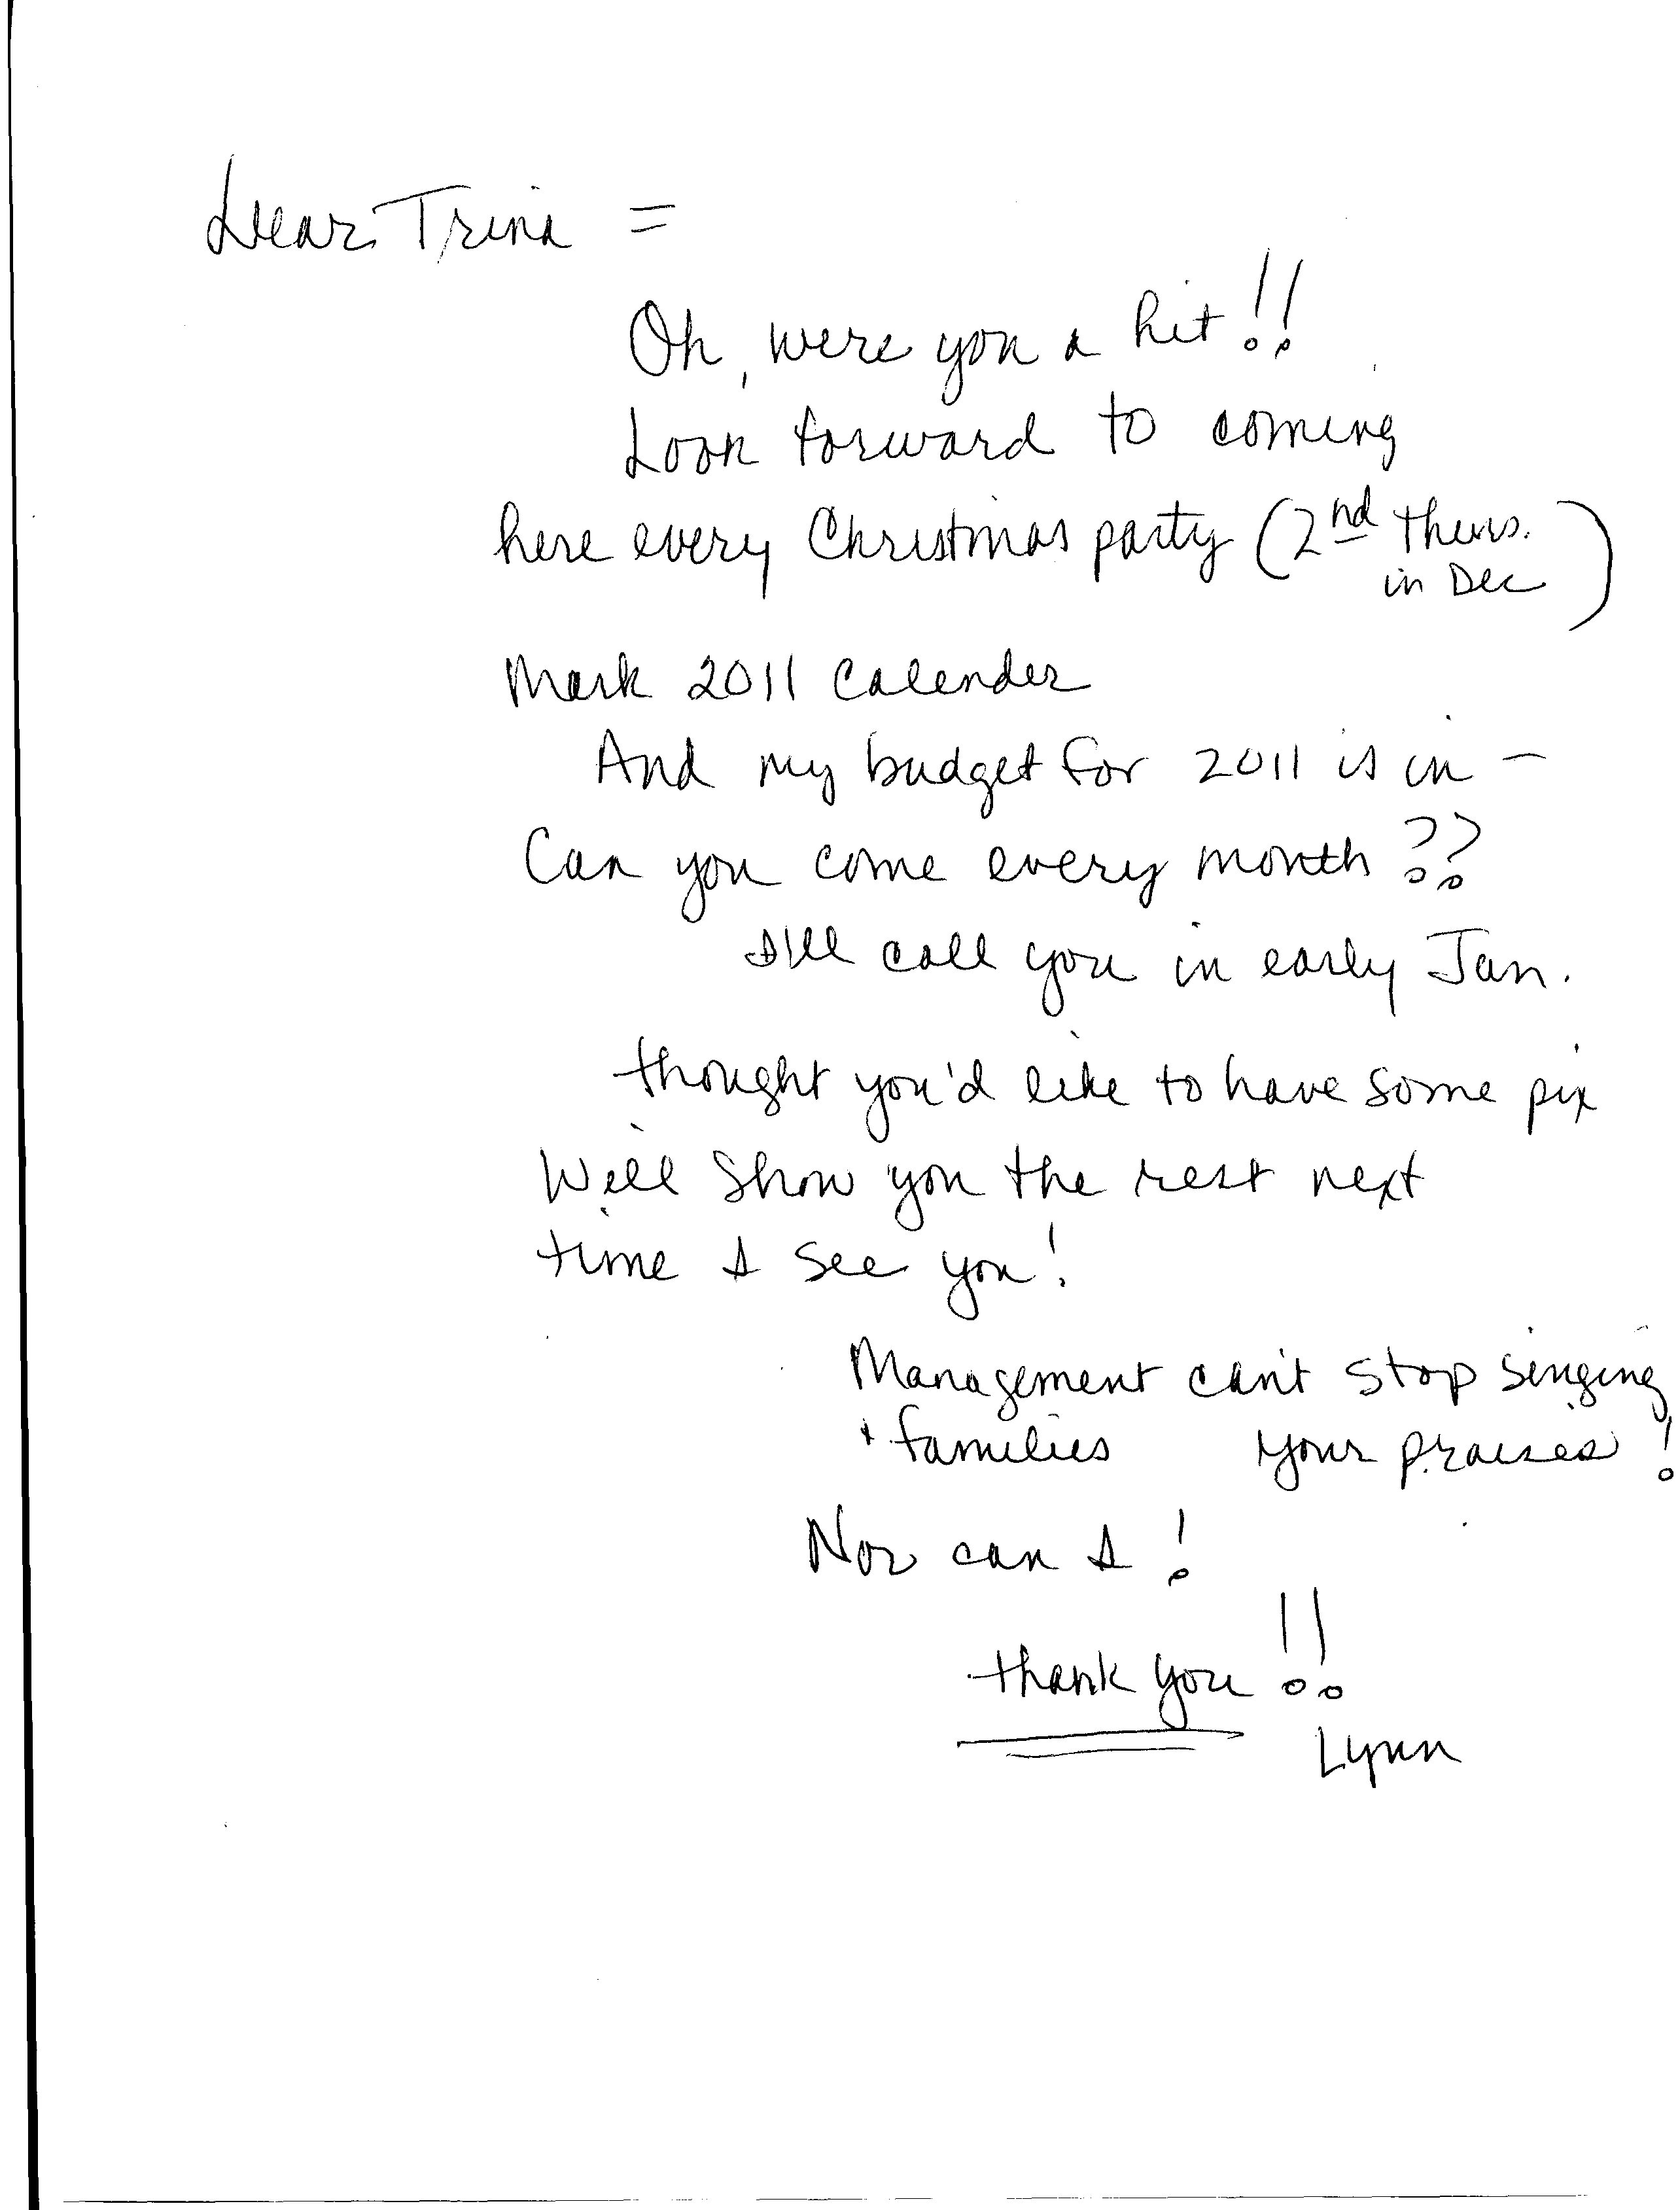 Dear Trina =
Oh, were you a hit!!
Look forward to coming
here every Christmas party (2nd Thurs.
in Dec)
Mark 2011 Calender
And my budget for 2011 is in -
Can you come every month ??
I'll call you in early Jan.
thought you'd like to have some pix
Will show you the rest next
time I see you!
Management can't stop singing
+ families your praises!
Nor can I!
thank you!!
Lynn